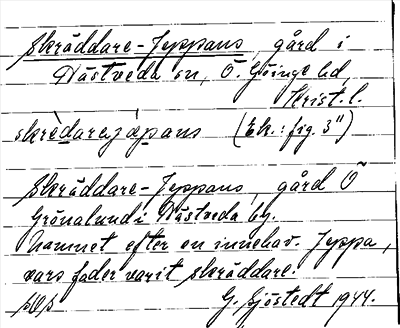 Skräddare-Jeppans, gård i
Västveda sn, Ö. Göinge hd,
Krist. l.
skrèdarejépans (Ek.: fig. 3")
Skräddare-Jeppans, gård Ö
Grönalund i Västveda by.
Namnet efter en innehav. Jeppa,
vars fader varit skräddare.
G. Sjöstedt 1944.